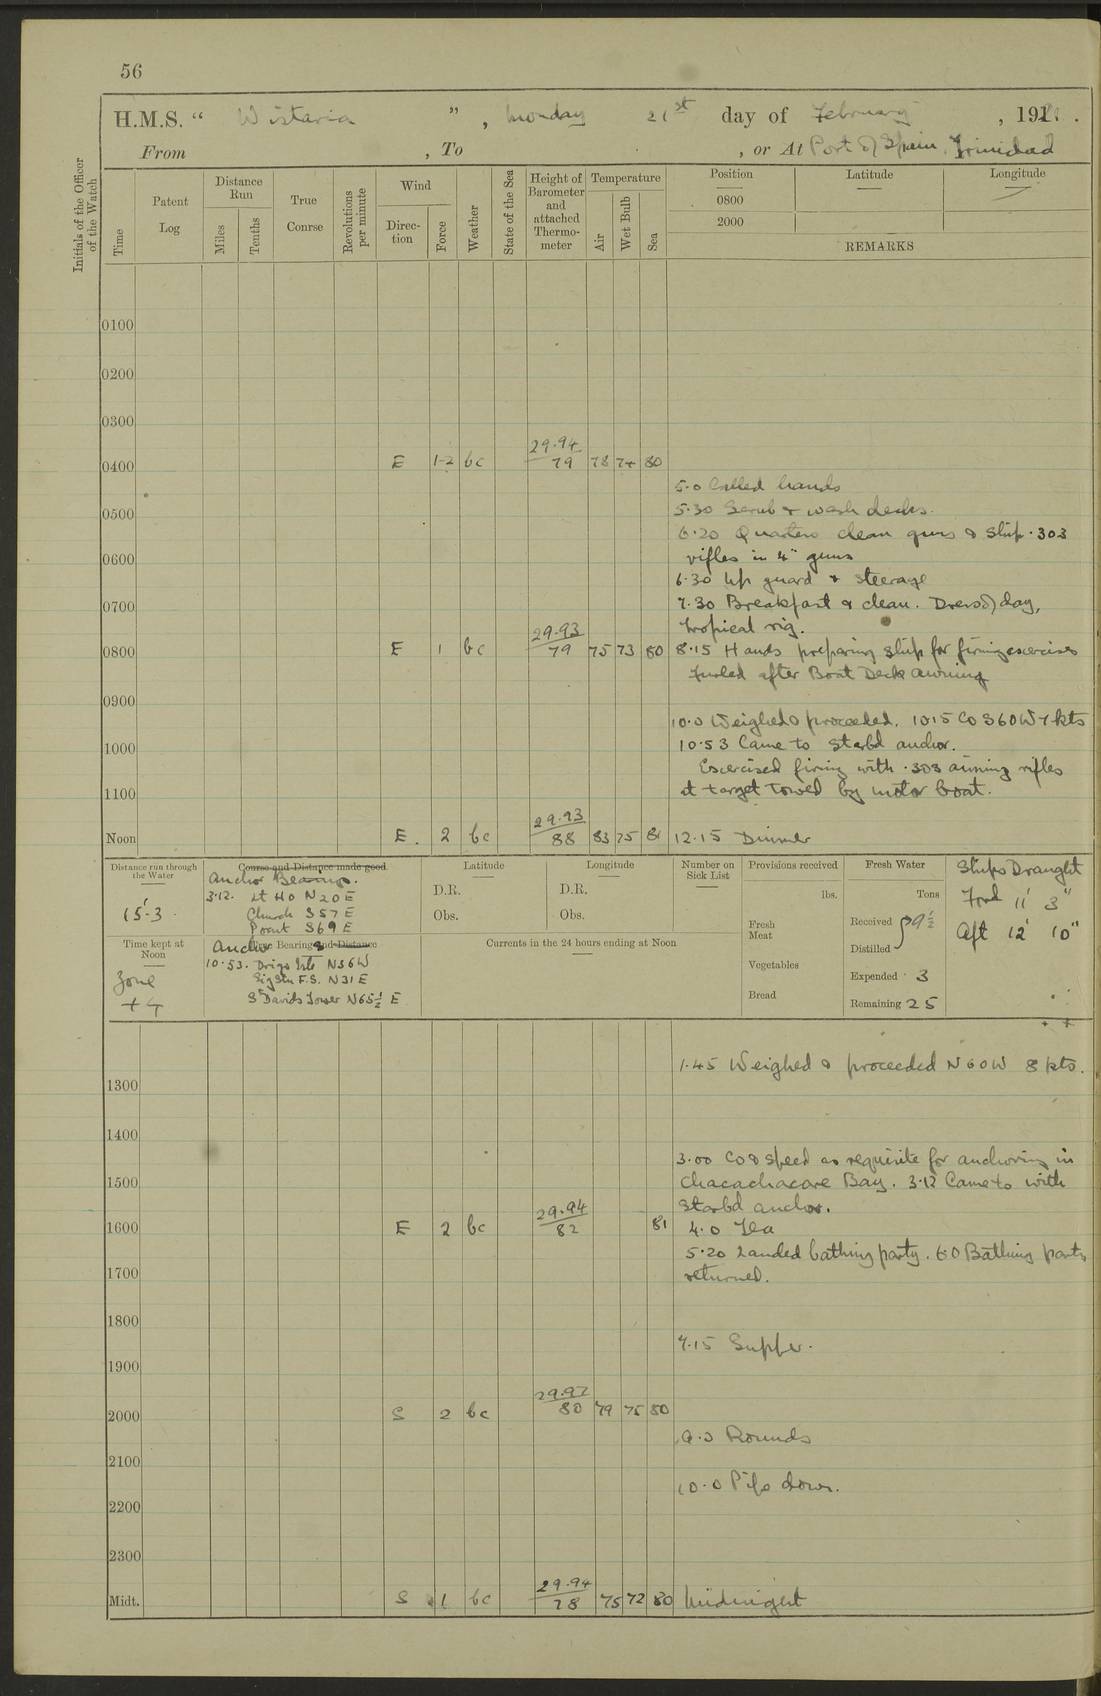 56
H.M.S. " Wistaria ", Monday 21st day of February, 192 .
From , To , or At Port of Spain, Trinidad
Initials of the Officer of the Watch
Time
Patent Log
Distance Run
Miles
Tenths
True Conrse
Revolutions per minute
Wind
Direc-tion
Force
Weather
State of the Sea
Height of Barometer and attached Thermo-meter
Temperature
Air
Wet Bulb
Sea
Position
Latitude
Longitude
0800
2000
REMARKS
0100
0200
0300
0400 E 1-2 bc 29.94/79 78 74 80
5.0 Called hands
0500
5.30 Scrub & wash decks.
6.20 Quarters clean guns & ship .303
0600
rifles in 4" guns
6.30 Up guard & steerage
0700
7.30 Breakfast & clean. Dress of day,
tropical rig.
0800 E 1 bc 29.93/79 75 73 80 8.15 Hands preparing ship for firing exercises
Furled after Boat Deck awning
0900
10.0 Weighed & proceeded. 10.15 Co S60W 7 kts
1000 10.53 Came to starbd anchor.
Exercised firing with .303 aiming rifles
1100 at target towed by motor boat.
Noon E. 2 bc 29.93/88 83 75 81 12.15 Dinner
Distance run through the Water
15.3
Course and Distance made good
Anchor Bearings.
3.12. Lt Ho N20E
Church S57E
Point S69E
Latitude
D.R.
Obs.
Longitude
D.R.
Obs.
Number on Sick List
Provisions received
lbs.
Fresh Meat
Vegetables
Bread
Fresh Water
Tons
Received
Distilled
9½
Expended 3
Remaining 25
Ships Draught
Ford 11' 3"
Aft 12' 10"
Time kept at Noon
Zone
+4
True Bearing and Distance
Anchor
10.53. N36W
Sig Stn F.S. N31E
St Davids Tower N65½E
Currents in the 24 hours ending at Noon
1.45 Weighed & proceeded N60W 8 kts.
1300
1400
3.00 Co & speed as requisite for anchoring in
1500 Chacachacare Bay. 3.12 Came to with
starbd anchor.
1600 E 2 bc 29.94/82 81 4.0 Tea
5.20 Landed bathing party. 6.0 Bathing party
1700 returned.
1800
7.15 Supper.
1900
2000 S 2 bc 29.97/80 79 75 80
9.0 Rounds
2100
10.0 Pipe down.
2200
2300
Midt. S 1 bc 29.94/78 75 72 80 Midnight